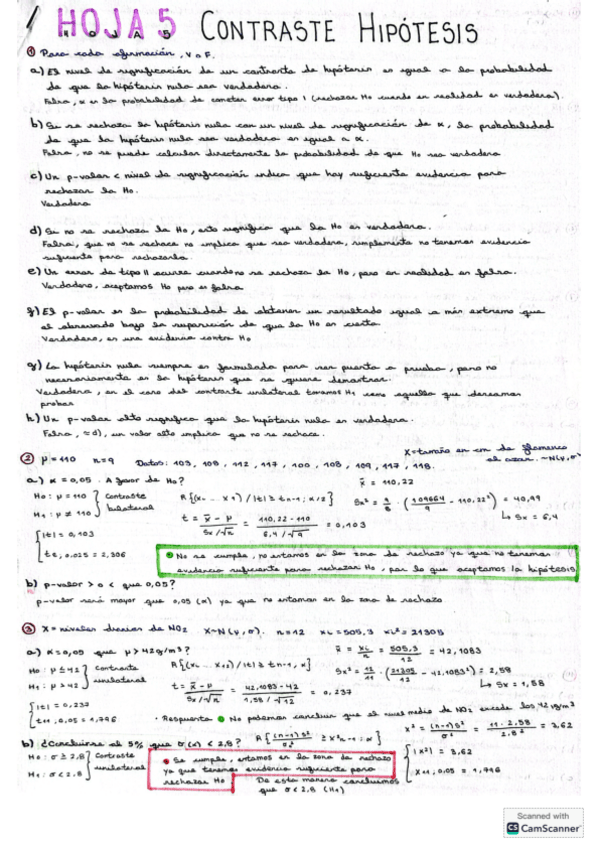 HOJA 5 CONTRASTE HIPÓTESIS
① Para cada afirmación, V o F.
a) El nivel de significación de un contraste de hipótesis es igual a la probabilidad
de que la hipótesis nula sea verdadera.
Falsa, α es la probabilidad de cometer error tipo I (rechazar Ho cuando en realidad es verdadera).
b) Si se rechaza la hipótesis nula con un nivel de significación de α, la probabilidad
de que la hipótesis nula sea verdadera es igual a α.
Falsa, no se puede calcular directamente la probabilidad de que Ho sea verdadera
c) Un p-valor < nivel de significación indica que hay suficiente evidencia para
rechazar la Ho.
Verdadera
d) Si no se rechaza la Ho, esto significa que la Ho es verdadera.
Falsa, que no se rechace no implica que sea verdadera, simplemente no tenemos evidencia
suficiente para rechazarla.
e) Un error de tipo II ocurre cuando no se rechaza la Ho, pero en realidad es falsa.
Verdadero, aceptamos Ho pero es falsa
f) El p-valor es la probabilidad de obtener un resultado igual o más extremo que
el observado bajo la suposición de que la Ho es cierta.
Verdadero, es una evidencia contra Ho
g) La hipótesis nula siempre es formulada para ser puesta a prueba, pero no
necesariamente es la hipótesis que se quiere demostrar.
Verdadera, en el caso del contraste unilateral tomamos H1 como aquello que deseamos
probar
h) Un p-valor alto significa que la hipótesis nula es verdadera.
Falsa, =d), un valor alto implica que no se rechace.
② μ = 110 n = 9 Datos: 103, 108, 112, 117, 100, 108, 109, 117, 118.
X = tamaño en cm de flamenco
al azar. ~N(μ, σ)
a) α = 0,05. A favor de Ho?
x̄ = 110,22
Ho: μ = 110 } Contraste
H1: μ ≠ 110 } bilateral
R{(x1 ... x9) / |t| ≥ tn-1; α/2}
Sx² = 9/8 · (109664/9 - 110,22²) = 40,99
↳ Sx = 6,4
t = (x̄ - μ)/(Sx/√n) = (110,22 - 110)/(6,4/√9) = 0,103
{ |t| = 0,103
t8, 0.025 = 2,306
No se cumple, no estamos en la zona de rechazo ya que no tenemos
evidencia suficiente para rechazar Ho, por lo que aceptamos la hipótesis
b) p-valor > o < que 0,05?
p-valor será mayor que 0,05 (α) ya que no estamos en la zona de rechazo
③ X = niveles diarios de NO2 X~N(μ, σ). n = 12 xi = 505,3 xi² = 21305
a) α = 0,05 que μ > 42 g/m³?
x̄ = xi/n = 505,3/12 = 42,1083
Ho: μ ≤ 42 } Contraste
H1: μ > 42 } unilateral
R{(x1 ... x12) / |t| ≥ tn-1, α}
Sx² = 12/11 · (21305/12 - 42,1083²) = 2,58
↳ Sx = 1,58
t = (x̄ - μ)/(Sx/√n) = (42,1083 - 42)/(1,58/√12) = 0,237
{ |t| = 0,237
t11, 0.05 = 1,796
· Respuesta No podemos concluir que el nivel medio de NO2 excede los 42 g/m3
b) ¿Concluirse al 5% que σ(x) < 2,8?
R{ (n-1)s²/σ² ≥ X²n-1; α}
x² = (n-1)s²/σ² = 11 · 2,58/2.8² = 3,62
Ho: σ ≥ 2,8 } Contraste
H1: σ < 2,8 } unilateral
Se cumple, estamos en la zona de rechazo
ya que tenemos evidencia suficiente para
rechazar Ho
De esta manera concluimos
que σ < 2,8 (H1)
{ |X²| = 3,62
X11, 0,05 = 1,796
Scanned with
CS CamScanner